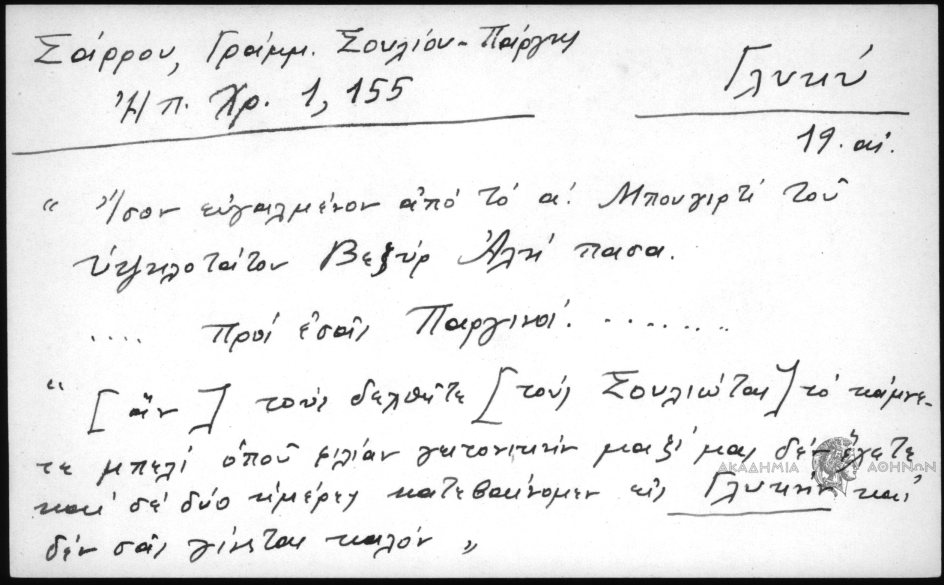 Σάρρου, Γράμμ. Σουλίου-Πάργης
Ἠπ. Χρ. 1, 155
Γλυκύ
19. αἰ.
“ Ἴσον εὐγαλμένον ἀπό τό α! Μπουγιρτί τοῦ
ὑψηλοτάτου Βεζύρ Ἀλῆ πασα.
.... πρός ἐσᾶς Παργινοί. ........
“ [ ἄν ] τούς δεχθῆτε [ τούς Σουλιώτας ] τό κάμνε-
τε μπελί ὁποῦ φιλίαν γειτονικήν μαζί μας δέν ἔχετε
καί σέ δύο ἡμέρες κατεβαίνομεν εἰς Γλυκήν καί
δέν σᾶς γίνεται καλόν „
ΑΚΑΔΗΜΙΑ ΑΘΗΝΩΝ